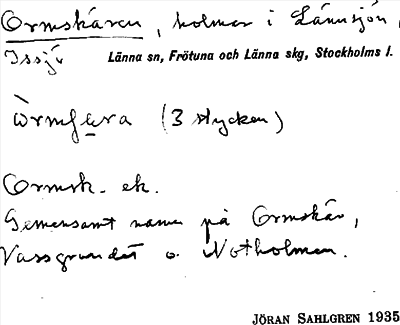 Ormskären, holmar i Lännsjön,
Issjö Länna sn, Frötuna och Länna skg, Stockholms l.
(3 stycken)
Ormsk. ek.
Gemensamt namn på Ormskär,
Vassgrundet o. Notholmen.
JÖRAN SAHLGREN 1935